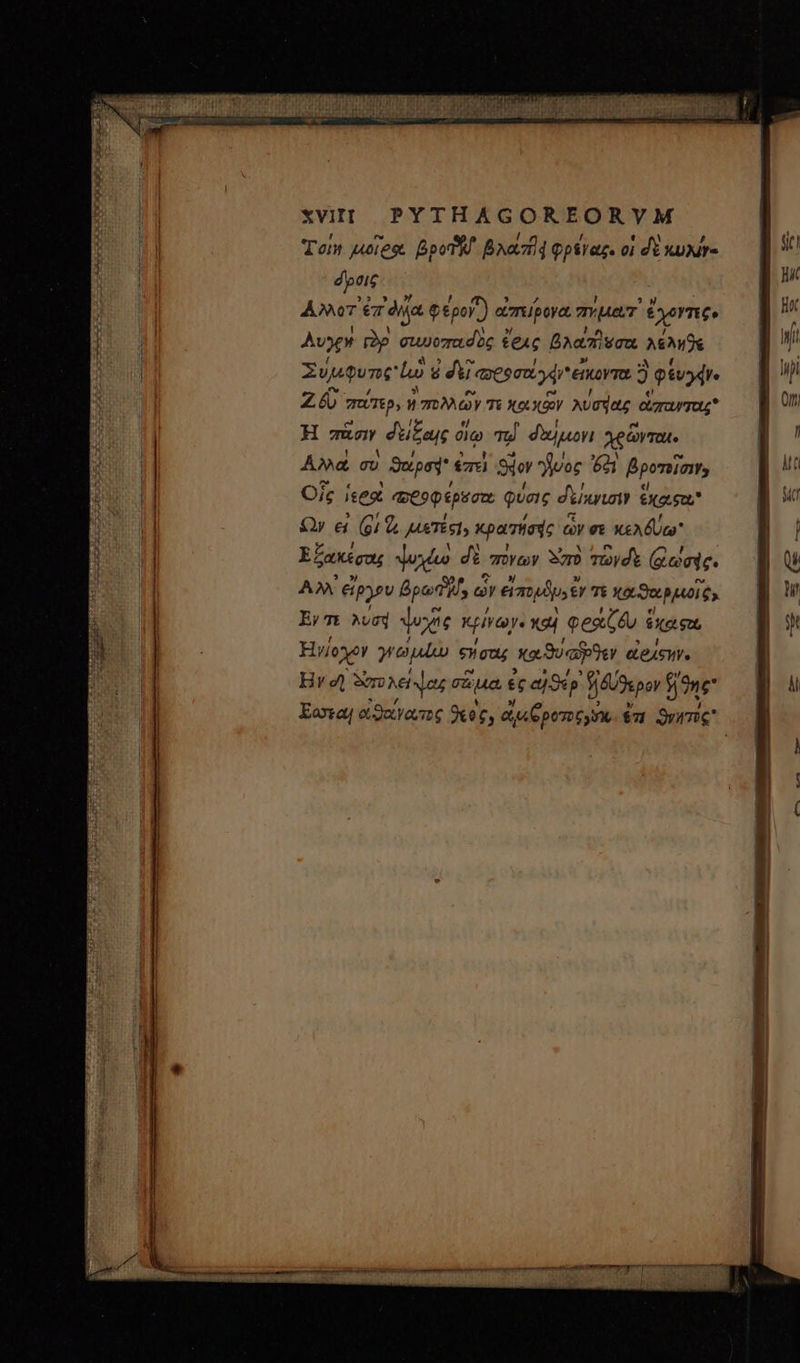 XVIII PYTHAGOREORVM
Τοίη μοῖρα βροτῶν βλάπτει φρένας. οἱ δὲ κυλίν-
δροις
Ἄλλοτ' ἐπ' ἄλλα φέρονται ἀπείρονα πήματ' ἔχοντες.
Λυγρὴ γὰρ συνοπαδὸς ἔρις βλάπτουσα λέληθε
Σύμφυτος· ἣν οὐ δεῖ προσάγειν· εἴκοντα δὲ φεύγειν.
Ζεῦ πάτερ, ἢ πολλῶν τε κακῶν λύσειας ἅπαντας·
Ἢ πᾶσιν δείξαις οἵῳ τῷ δαίμονι χρῶνται.
Ἀλλὰ σὺ θάρσει· ἐπεὶ θεῖον γένος ἐστὶ βροτοῖσιν,
Οἷς ἱερὰ προφέρουσα φύσις δείκνυσιν ἕκαστα·
Ὧν εἰ σοί τι μέτεστι, κρατήσεις ὧν σε κελεύω·
Ἐξακέσας ψυχὴν δὲ πόνων ἀπὸ τῶνδε σαώσεις.
Ἀλλ' εἴργου βρωτῶν, ὧν εἴπομεν, ἔν τε καθαρμοῖς,
Ἔν τε λύσει ψυχῆς κρίνων. καὶ φράζευ ἕκαστα,
Ἡνίοχον γνώμην στήσας καθύπερθεν ἀρίστην.
Ἢν δ' ἀπολείψας σῶμα ἐς αἰθέρ' ἐλεύθερον ἔλθῃς·
Ἔσσεαι ἀθάνατος θεὸς, ἄμβροτος, οὐκ ἔτι θνητός·